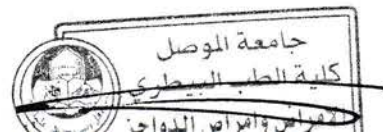 جامعة الموصل
كلية الطب البيطري
الامراض وامراض الدواجن